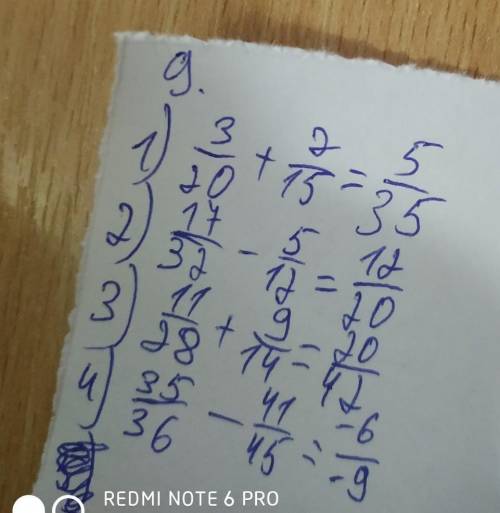 9.
1) 3/20 + 2/15 = 5/35
2) 17/32 - 5/12 = 12/20
3) 11/28 + 9/14 = 20/42
4) 35/36 - 41/45 = -6/-9
REDMI NOTE 6 PRO